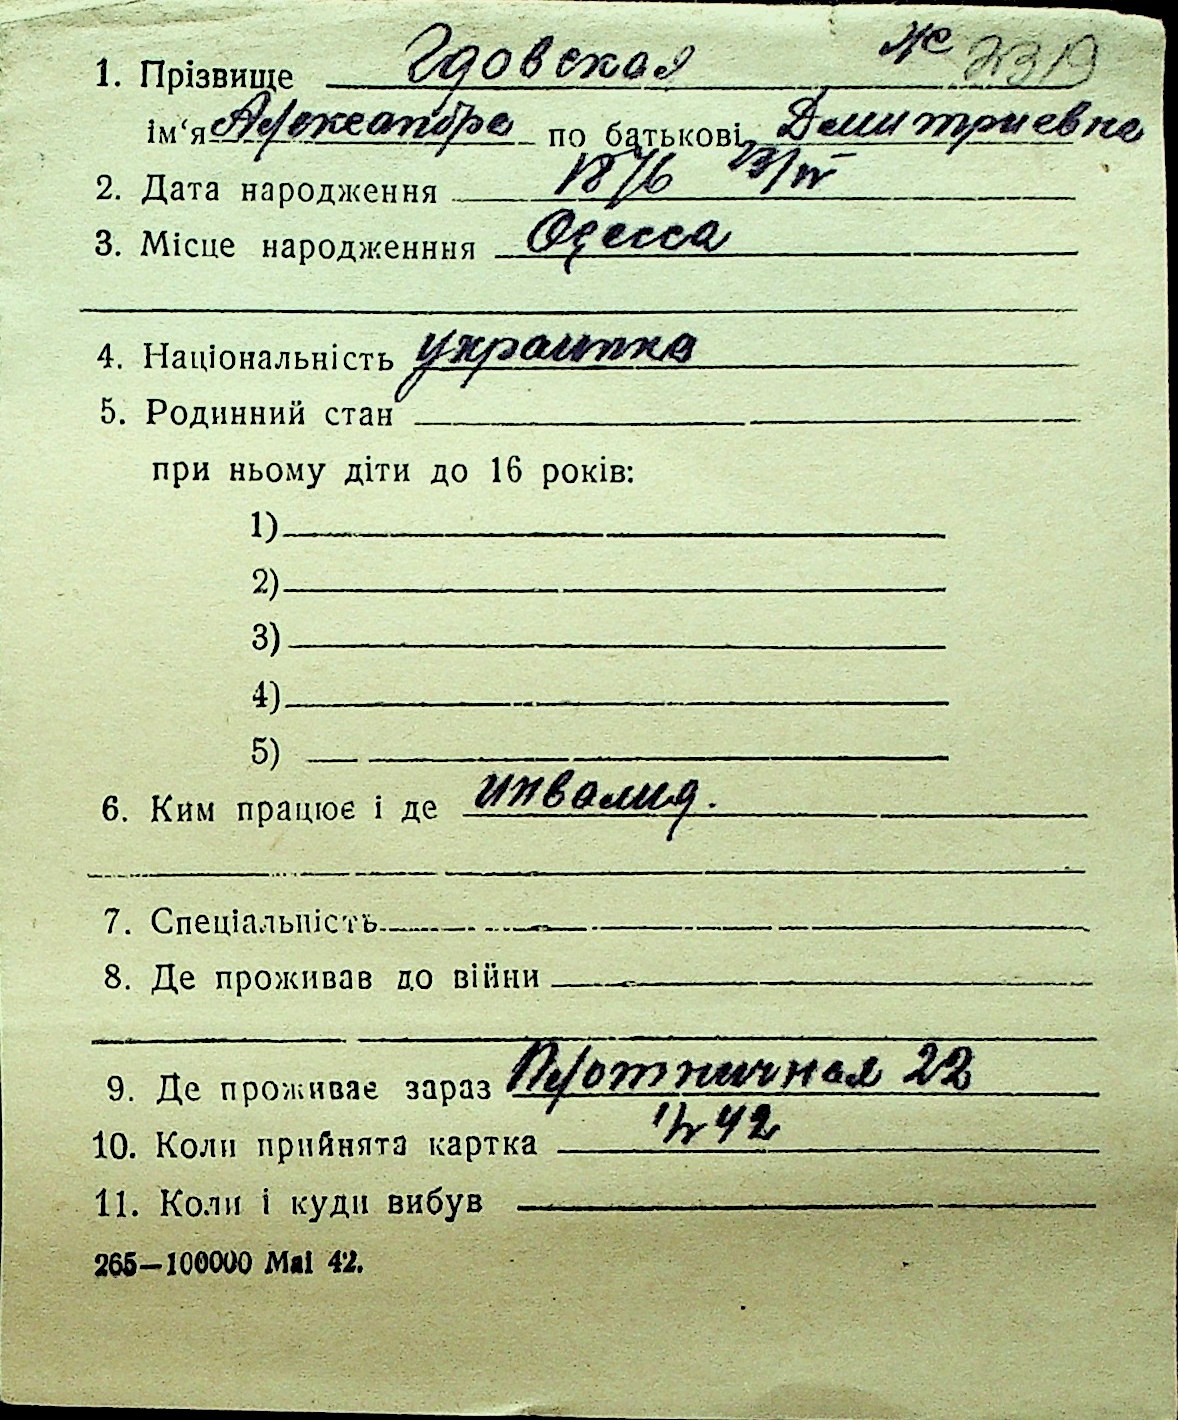 1. Прізвище Гдовская № 2319
ім‘я Александра по батькові Дмитриевна
2. Дата народження 1876 23/IV
3. Місце народженння Одесса
4. Національність украинка
5. Родинний стан
при ньому діти до 16 років:
1)
2)
3)
4)
5)
6. Ким працює і де инвалид.
7. Спеціальність
8. Де проживав до війни
9. Де проживає зараз Плотничная 22
10. Коли прийнята картка 42
11. Коли і куди вибув
265—100000 Mai 42.